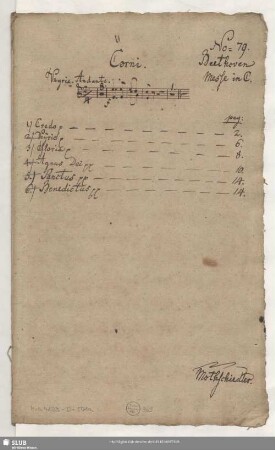 No= 79.
Corni.
Beethoven
Messe in C.
Kyrie. Andante.
pag:
1) Credo p 2.
2) Kyrie p 6.
3) Gloria p 8.
4) Agnus Dei pp 10.
5) Sanctus pp 14.
6) Benedictus pp 14.
SLUB